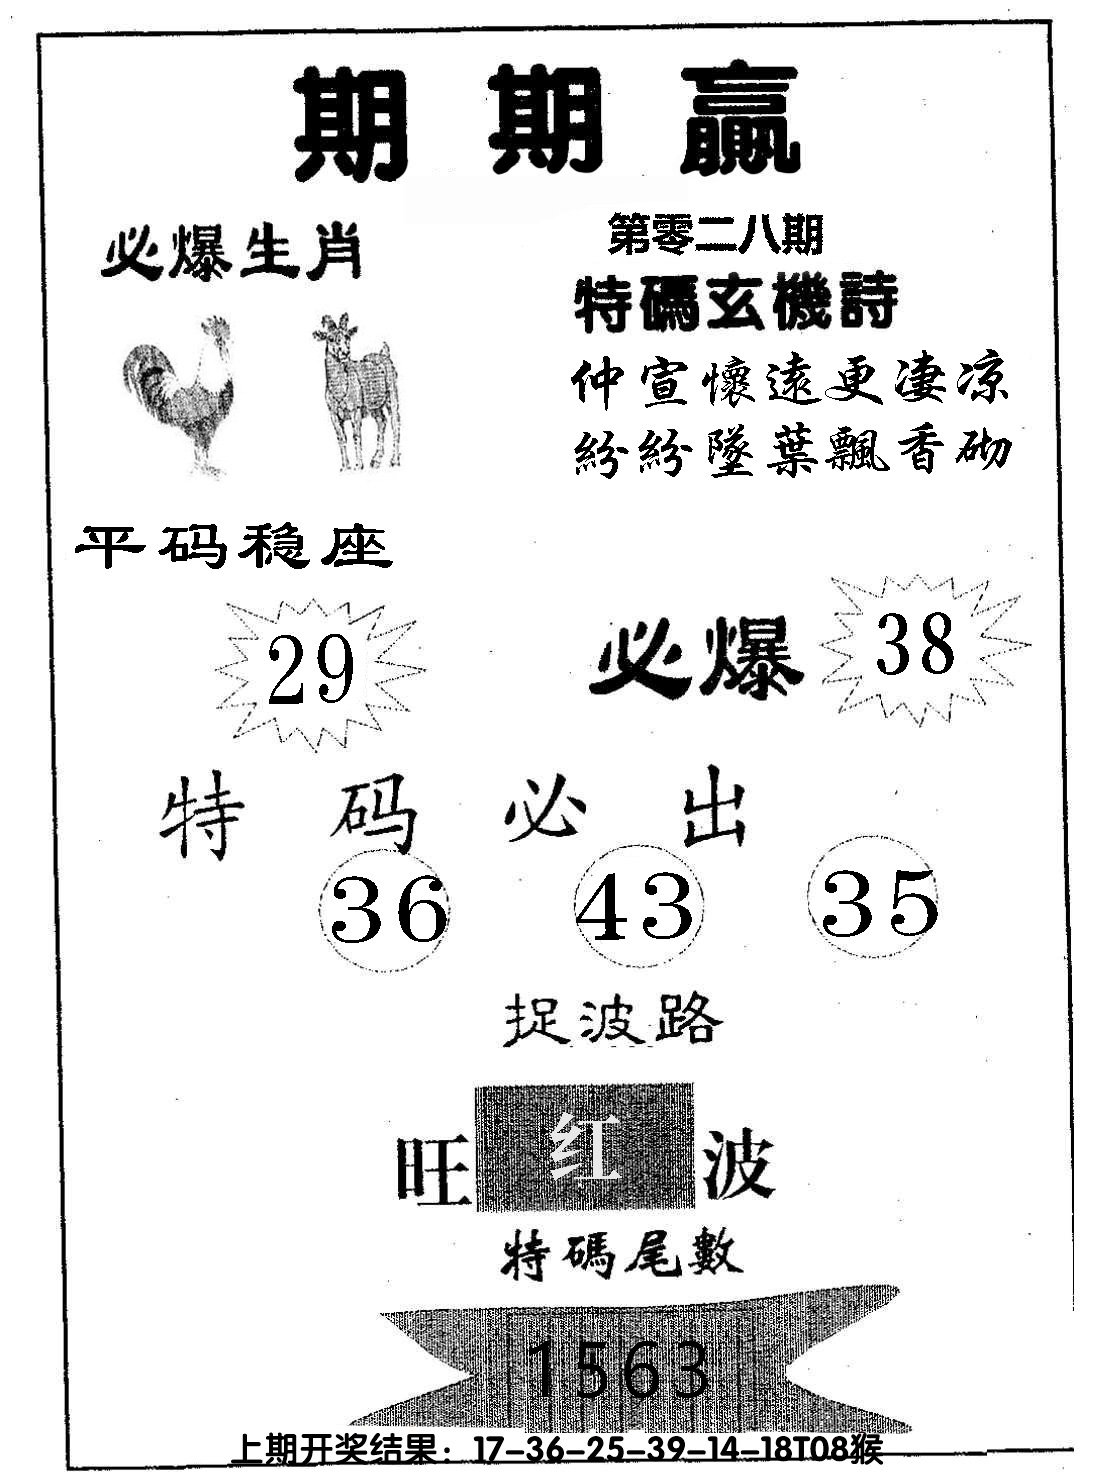 期期贏
必爆生肖
第零二八期
特碼玄機詩
仲宣懷遠更淒凉
紛紛墜葉飄香砌
平码稳座
29
必爆 38
特码必出
36 43 35
捉波路
旺红波
特碼尾數
1563
上期开奖结果：17-36-25-39-14-18T08猴